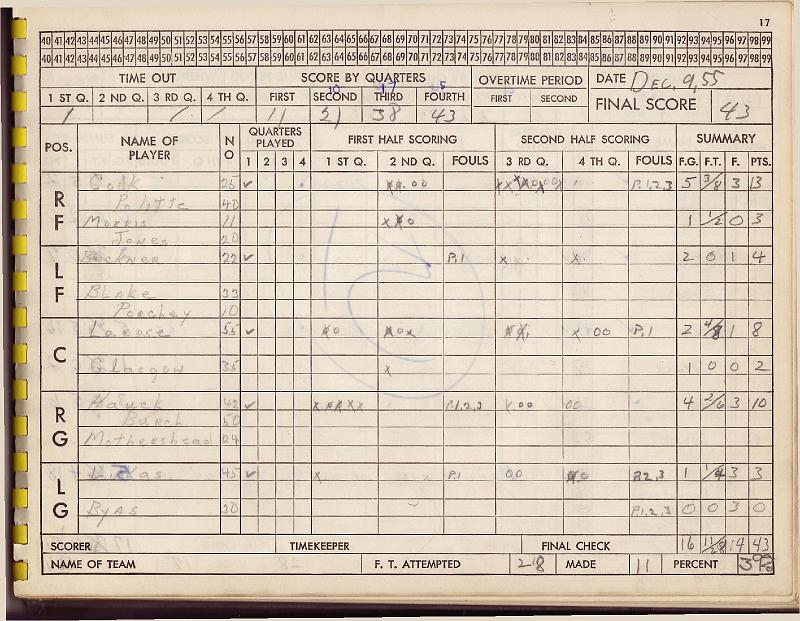 17
40 41 42 43 44 45 46 47 48 49 50 51 52 53 54 55 56 57 58 59 60 61 62 63 64 65 66 67 68 69 70 71 72 73 74 75 76 77 78 79 80 81 82 83 84 85 86 87 88 89 90 91 92 93 94 95 96 97 98 99
40 41 42 43 44 45 46 47 48 49 50 51 52 53 54 55 56 57 58 59 60 61 62 63 64 65 66 67 68 69 70 71 72 73 74 75 76 77 78 79 80 81 82 83 84 85 86 87 88 89 90 91 92 93 94 95 96 97 98 99
TIME OUT SCORE BY QUARTERS OVERTIME PERIOD DATE Dec, 9, 55
1 ST Q. 2 ND Q. 3 RD Q. 4 TH Q. FIRST SECOND THIRD FOURTH FIRST SECOND FINAL SCORE 43
1 1 1 11 21 38 43
POS. NAME OF PLAYER NO QUARTERS PLAYED FIRST HALF SCORING SECOND HALF SCORING SUMMARY
1 2 3 4 1 ST Q. 2 ND Q. FOULS 3 RD Q. 4 TH Q. FOULS F.G. F.T. F. PTS.
RF Cook 25 P.1,2,3 5 3/8 3 13
Politte 40
Morris 11 1 1/2 0 3
Jones 20
LF Buckner 22 P.1 x x 2 0 1 4
Blake 33
Poechey 10
C LaRose 55 P.1 2 4/8 1 8
Glasgow 35 x 1 0 0 2
RG Hauck 42 P.1,2,3 x 00 00 4 2/6 3 10
Burch 50
Mothershead 24
LG 45 x P.1 00 P.2,3 1 1/4 3 3
Byas 30 P.1,2,3 0 0 3 0
SCORER TIMEKEEPER FINAL CHECK 16 11/28 14 43
NAME OF TEAM F. T. ATTEMPTED 28 MADE 11 PERCENT 39%